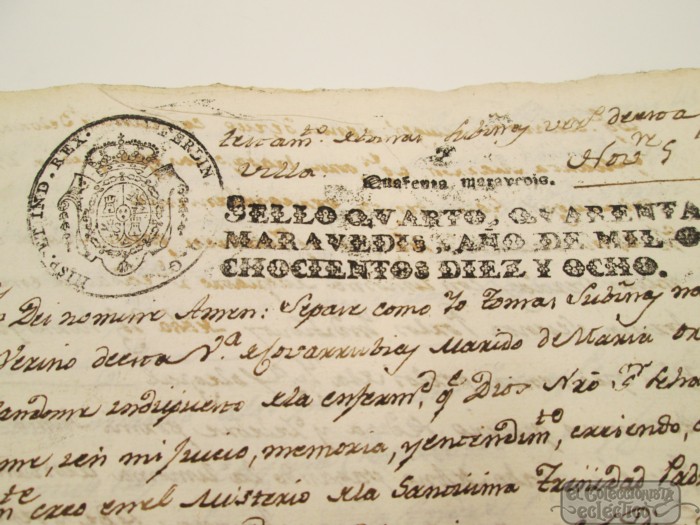 HISP. ET IND. REX. FERDIN.
testam.to de tomas Subiñas vez.o de esta
Villa
Nov.re 5
Quarenta maravedis.
SELLO QVARTO, QVARENTA
MARAVEDIS, AÑO DE MIL O-
CHOCIENTOS DIEZ Y OCHO.
Dei nomine Amen: Sepase como Yo Tomas Subiñas
Vecino de esta V.a de Covarrubias Marido de Maria
indispuesto de la enferm.d q.e Dios Nrô S.r
en mi Juicio, memoria, y entendim.to, creiendo,
creo en el Misterio de la Santisima Trinidad
El Coleccionista
ecléctico